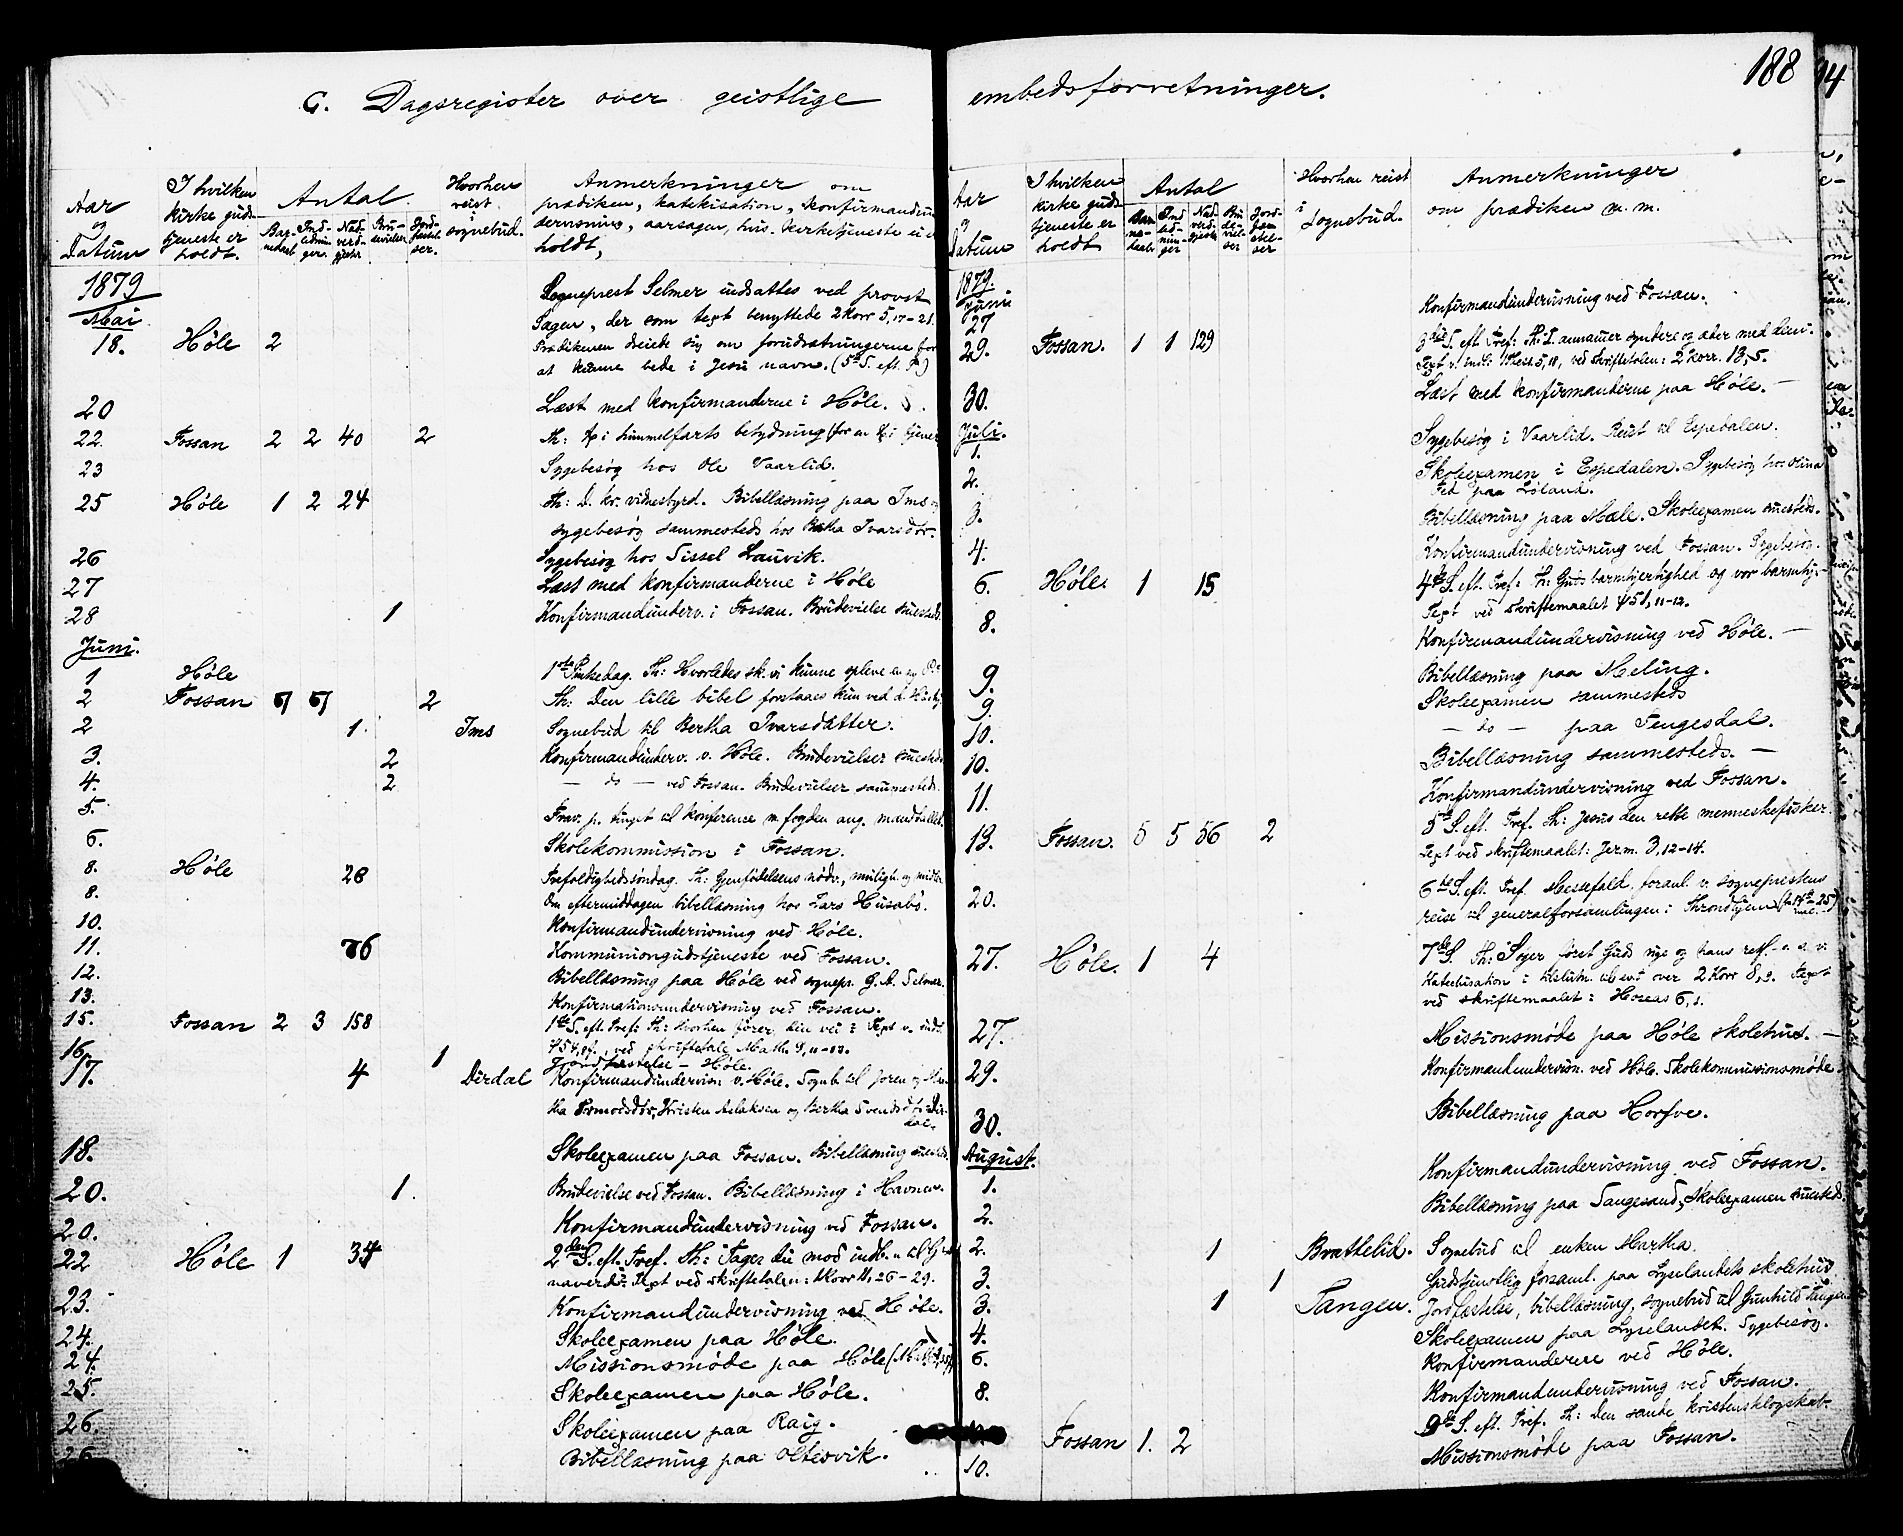 188
C. Dagsregister over geistlige embedsforretninger.
Aar og Datum
I hvilken kirke gudstjeneste er holdt.
Antal
Hvorhen reist i sognebud.
Anmerkninger om
prædiken, katekisation, konfirmandun-
dervisning, aarsager, hvis kirketjeneste ei er
holdt,
1879
Mai
Sogneprest Selmer indsattes ved provst
der som text benyttede 2 Korr 5, 17-21.
18. Høle 2 Prædikenen dreiede sig om forudsætningerne for
at kunne bede i Jesu navn. (5te S. eft. P.)
20 Læst med konfirmanderne i Høle.
22. Fossan 2 2 40 2 Th: himmelfarts betydning for
23 Sygebesøg hos Ole Vaarlid.
25 Høle 1 2 24 Th: D. kr. vidnesbyrd. Bibellæsning paa Ims og
sygebesøg sammesteds hos Bertha Ivarsdtr.
26 Sygebesøg hos Sissel Lauvik.
27 Læst med konfirmanderne i Høle
28 1 Konfirmandunderv. i Fossan. Brudevielse
Juni.
1 Høle 1ste Pinkedag. Th: Hvorledes sk. vi kunne opleve en ny
2 Fossan 5 5 2 Th: Den lille bibel forstaaes kun ved d. H.
2 1. Ims Sognebud til Bertha Ivarsdatter.
3. 2 Konfirmandunderv. v. Høle. Brudevielser
4. 2 — do — ved Fossan. Brudevielser sammesteds.
5. Frav. p. tinget til konference m. fogden ang. mandtallet.
6. Skolekommission i Fossan.
8. Høle 28 Trefoldighedssøndag. Th: Gjenfødelsens nødv., muligh. og midler
8. Om eftermiddagen bibellæsning hos Lars Husabø.
10. Konfirmandundervisning ved Høle.
11. 76 Kommuniongudstjeneste ved Fossan.
12. Bibellæsning paa Høle ved sognepr. G. A. Selmer.
13. Konfirmationsundervisning ved Fossan.
15. Fossan 2 3 158 1ste S. eft. Tref: Th: Hvorhen fører din vei? Text v. indl.
ved skriftetale Math. 9, 11-13.
16. 1 Jordfæstelse — Høle.
17. 4 Dirdal Konfirmandundervisn. v. Høle. Sogneb. til Soren og
Kristen Aslaksen og Bertha Svendsd. fr. Dirdal.
18. Skoleexamen paa Fossan. Bibellæsning
20. 1. Brudevielse ved Fossan. Bibellæsning i Havnen.
20. Konfirmandundervisning ved Fossan.
22 Høle 1 34 2den S. eft. Tref. Th: Tager du mod indb. til
Text ved skriftetalen: 1 Korr 11, 26-29.
23. Konfirmandundervisning ved Høle.
24. Skoleexamen paa Høle.
24. Missionsmøde paa Høle
25. Skoleexamen paa Høle.
26. Skoleexamen paa Raig.
26 Bibellæsning paa Oltesvik.
Aar og Datum
I hvilken kirke gudstjeneste er holdt
Antal
Hvorhen reist i sognebud.
Anmerkninger
om prædiken m. m.
1879.
Juni
27 Konfirmandundervisning ved Fossan.
29. Fossan. 1 1 129 3die S. eft. Tref: Th: J. annammer syndere og æder med dem.
Text v. indl: 1 Thess. 5, 18, ved skriftetalen: 2 Korr. 13, 5.
30. Læst med konfirmanderne paa Høle. —
Juli.
1. Sygebesøg i Vaarlid. Reist til Espedalen.
2. Skoleexamen i Espedalen. Sygebesøg hos Olina
paa Løland.
3. Bibellæsning paa Mæle. Skoleexamen
4. Konfirmandundervisning ved Fossan. Sygebesøg.
6. Høle. 1 15 4de S. eft. Tref: Th: Guds barmhjertighed og vor barmhj.-
Text ved skriftemaalet ψ 51, 11-12.
8. Konfirmandundervisning ved Høle. —
9. Bibellæsning paa Meling.
9. Skoleexamen sammesteds
10. — do — paa Tengesdal.
10. Bibellæsning sammesteds. —
11. Konfirmandundervisning ved Fossan.
13. Fossan. 5 5 56 2 5te S. eft. Tref. Th: Jesus den rette menneskefisker.
Text ved skriftemaalet: Jerm. 3, 12-14.
20. 6te S. eft. Tref. Messefald, foranl. v. sogneprestens
reise til generalforsamlingen i Throndhjem
27. Høle. 1 4 7de S. Th: Søger først Guds rige og hans retf.
Katechisation i over 2 Korr 8, 9. Text
ved skriftemaalet: Hoseas 6, 1.
27. Missionsmøde paa Høle skolehus. —
29. Konfirmandundervisn. ved Høle. Skolekommissionsmøde
30. Bibellæsning paa Horfve.
August.
1. Konfirmandundervisning ved Fossan.
2. Bibellæsning paa Sangesand, Skoleexamen
2. 1 Brattelid. Sognebud til enken Martha.
3. 1 Gudstjenstlig forsaml. paa Lyselandets skolehus
3. 1 Tangen. Jordfæstelse, bibellæsning, sognebud til Gunhild Tangen
4. Skoleexamen paa Lyselandet. Sygebesøg.
6. Konfirmanderne ved Høle.
8. Konfirmandundervisning ved Fossan.
Fossan 1. 2 9de S. eft. Tref. Th: Den sande kristensklogskab.
10. Missionsmøde paa Fossan.